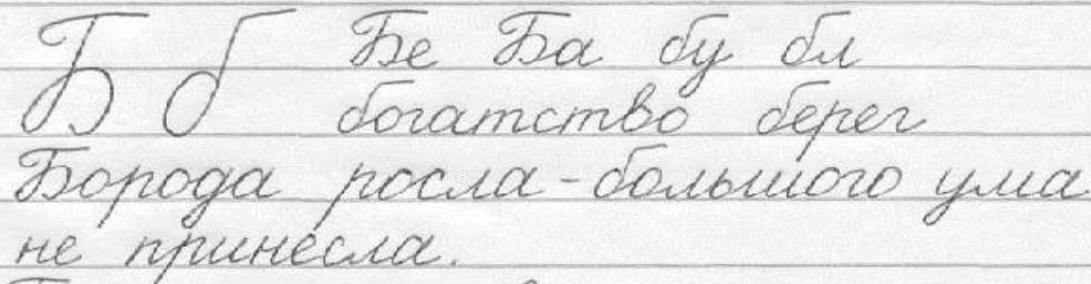 Б б Бе Ба бу бл
богатство берег
Борода росла - большого ума
не принесла.